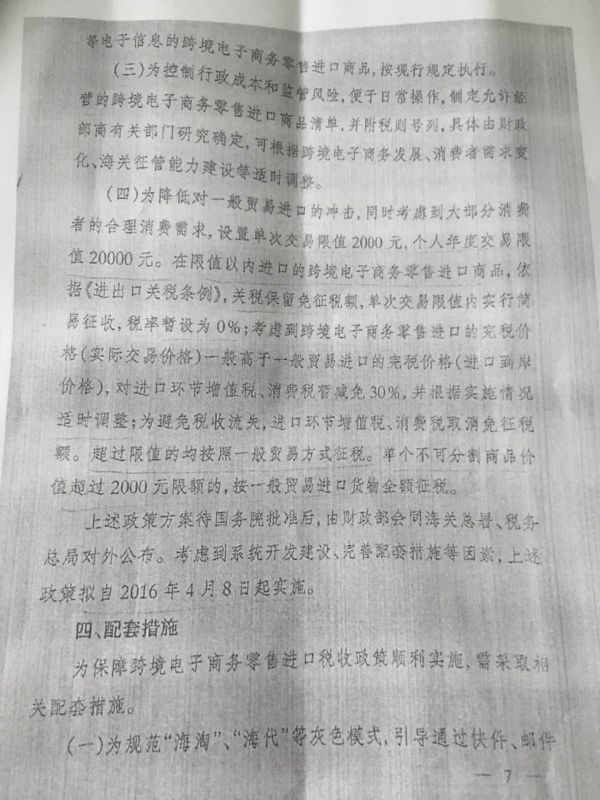 等电子信息的跨境电子商务零售进口商品,按现行规定执行。
(三)为控制行政成本和监管风险,便于日常操作,制定允许经
营的跨境电子商务零售进口商品清单,并附税则号列,具体由财政
部商有关部门研究确定,可根据跨境电子商务发展、消费者需求变
化、海关征管能力建设等适时调整。
(四)为降低对一般贸易进口的冲击,同时考虑到大部分消费
者的合理消费需求,设置单次交易限值2000元,个人年度交易限
值20000元。在限值以内进口的跨境电子商务零售进口商品,依
据《进出口关税条例》,关税保留免征税额,单次交易限值内实行简
易征收,税率暂设为0%;考虑到跨境电子商务零售进口的完税价
格(实际交易价格)一般高于一般贸易进口的完税价格(进口到岸
价格),对进口环节增值税、消费税暂减免30%,并根据实施情况
适时调整;为避免税收流失,进口环节增值税、消费税取消免征税
额。超过限值的均按照一般贸易方式征税。单个不可分割商品价
值超过2000元限额的,按一般贸易进口货物全额征税。
上述政策方案待国务院批准后,由财政部会同海关总署、税务
总局对外公布。考虑到系统开发建设、完善配套措施等因素,上述
政策拟自2016年4月8日起实施。
四、配套措施
为保障跨境电子商务零售进口税收政策顺利实施,需采取相
关配套措施。
(一)为规范“海淘”、“海代”等灰色模式,引导通过快件、邮件
— 7 —